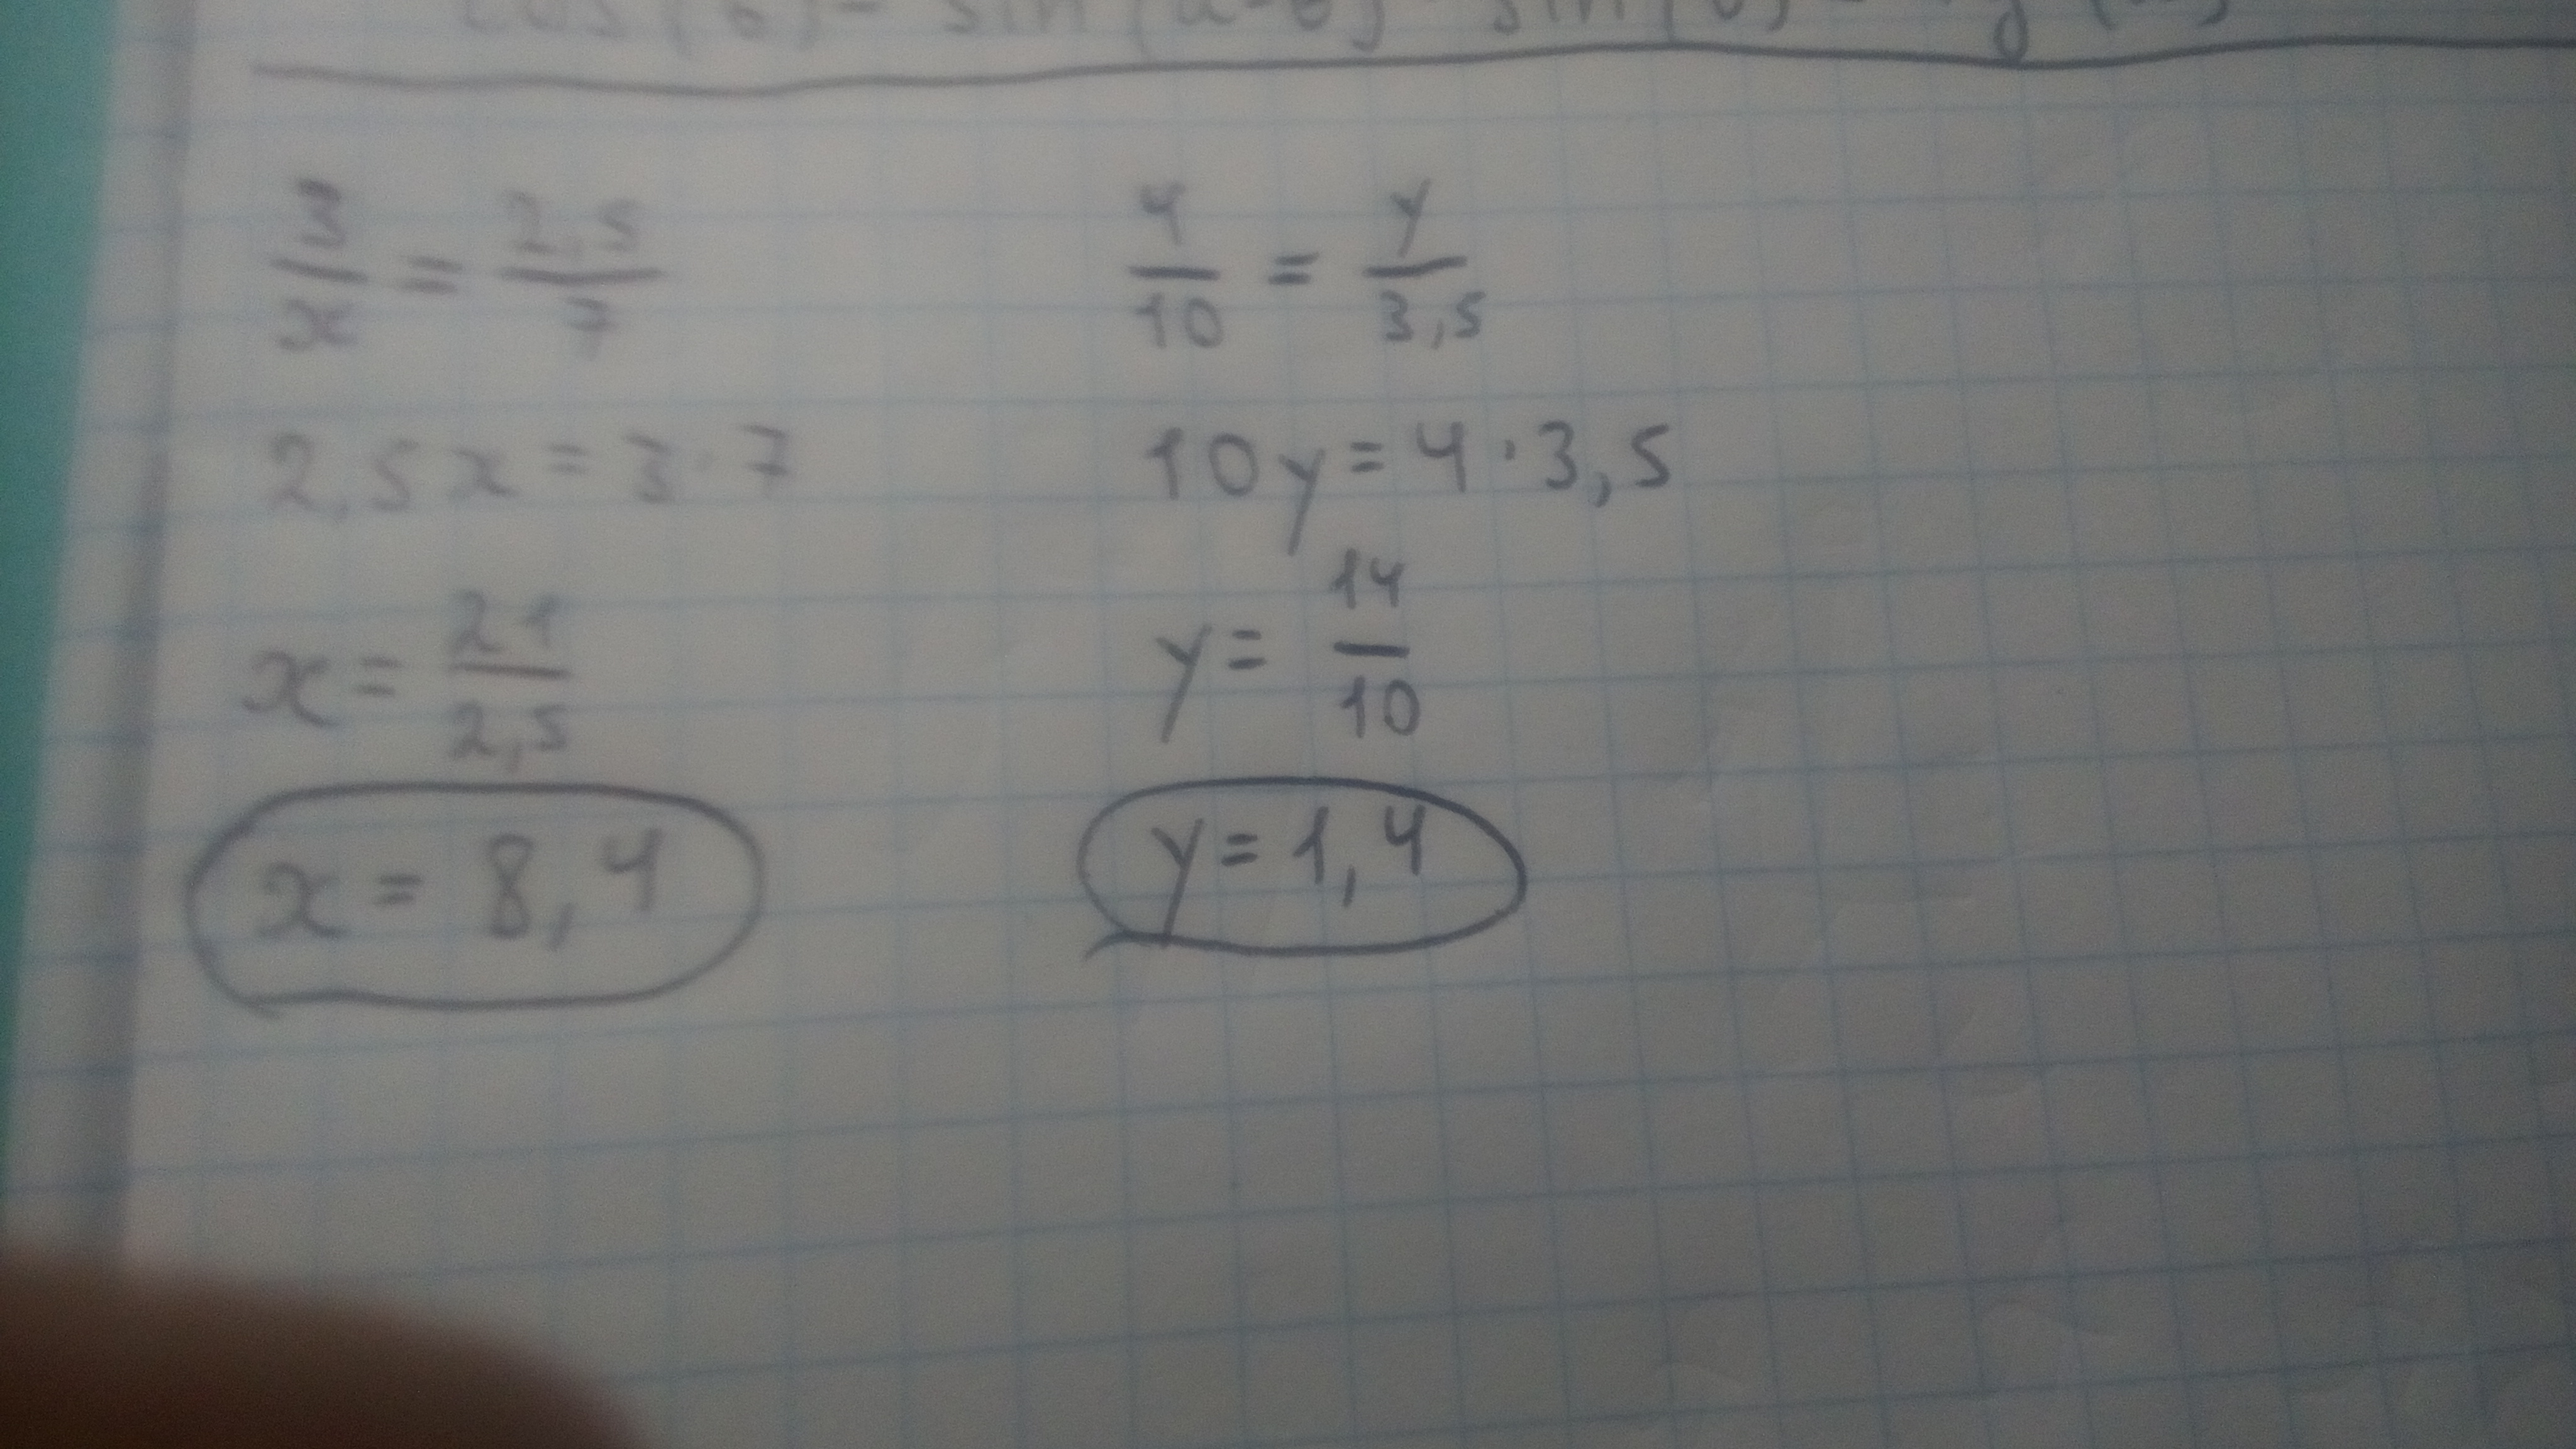 3/x = 2,5/7
2,5x = 3·7
x = 21/2,5
x = 8,4
4/10 = y/3,5
10y = 4·3,5
y = 14/10
y = 1,4